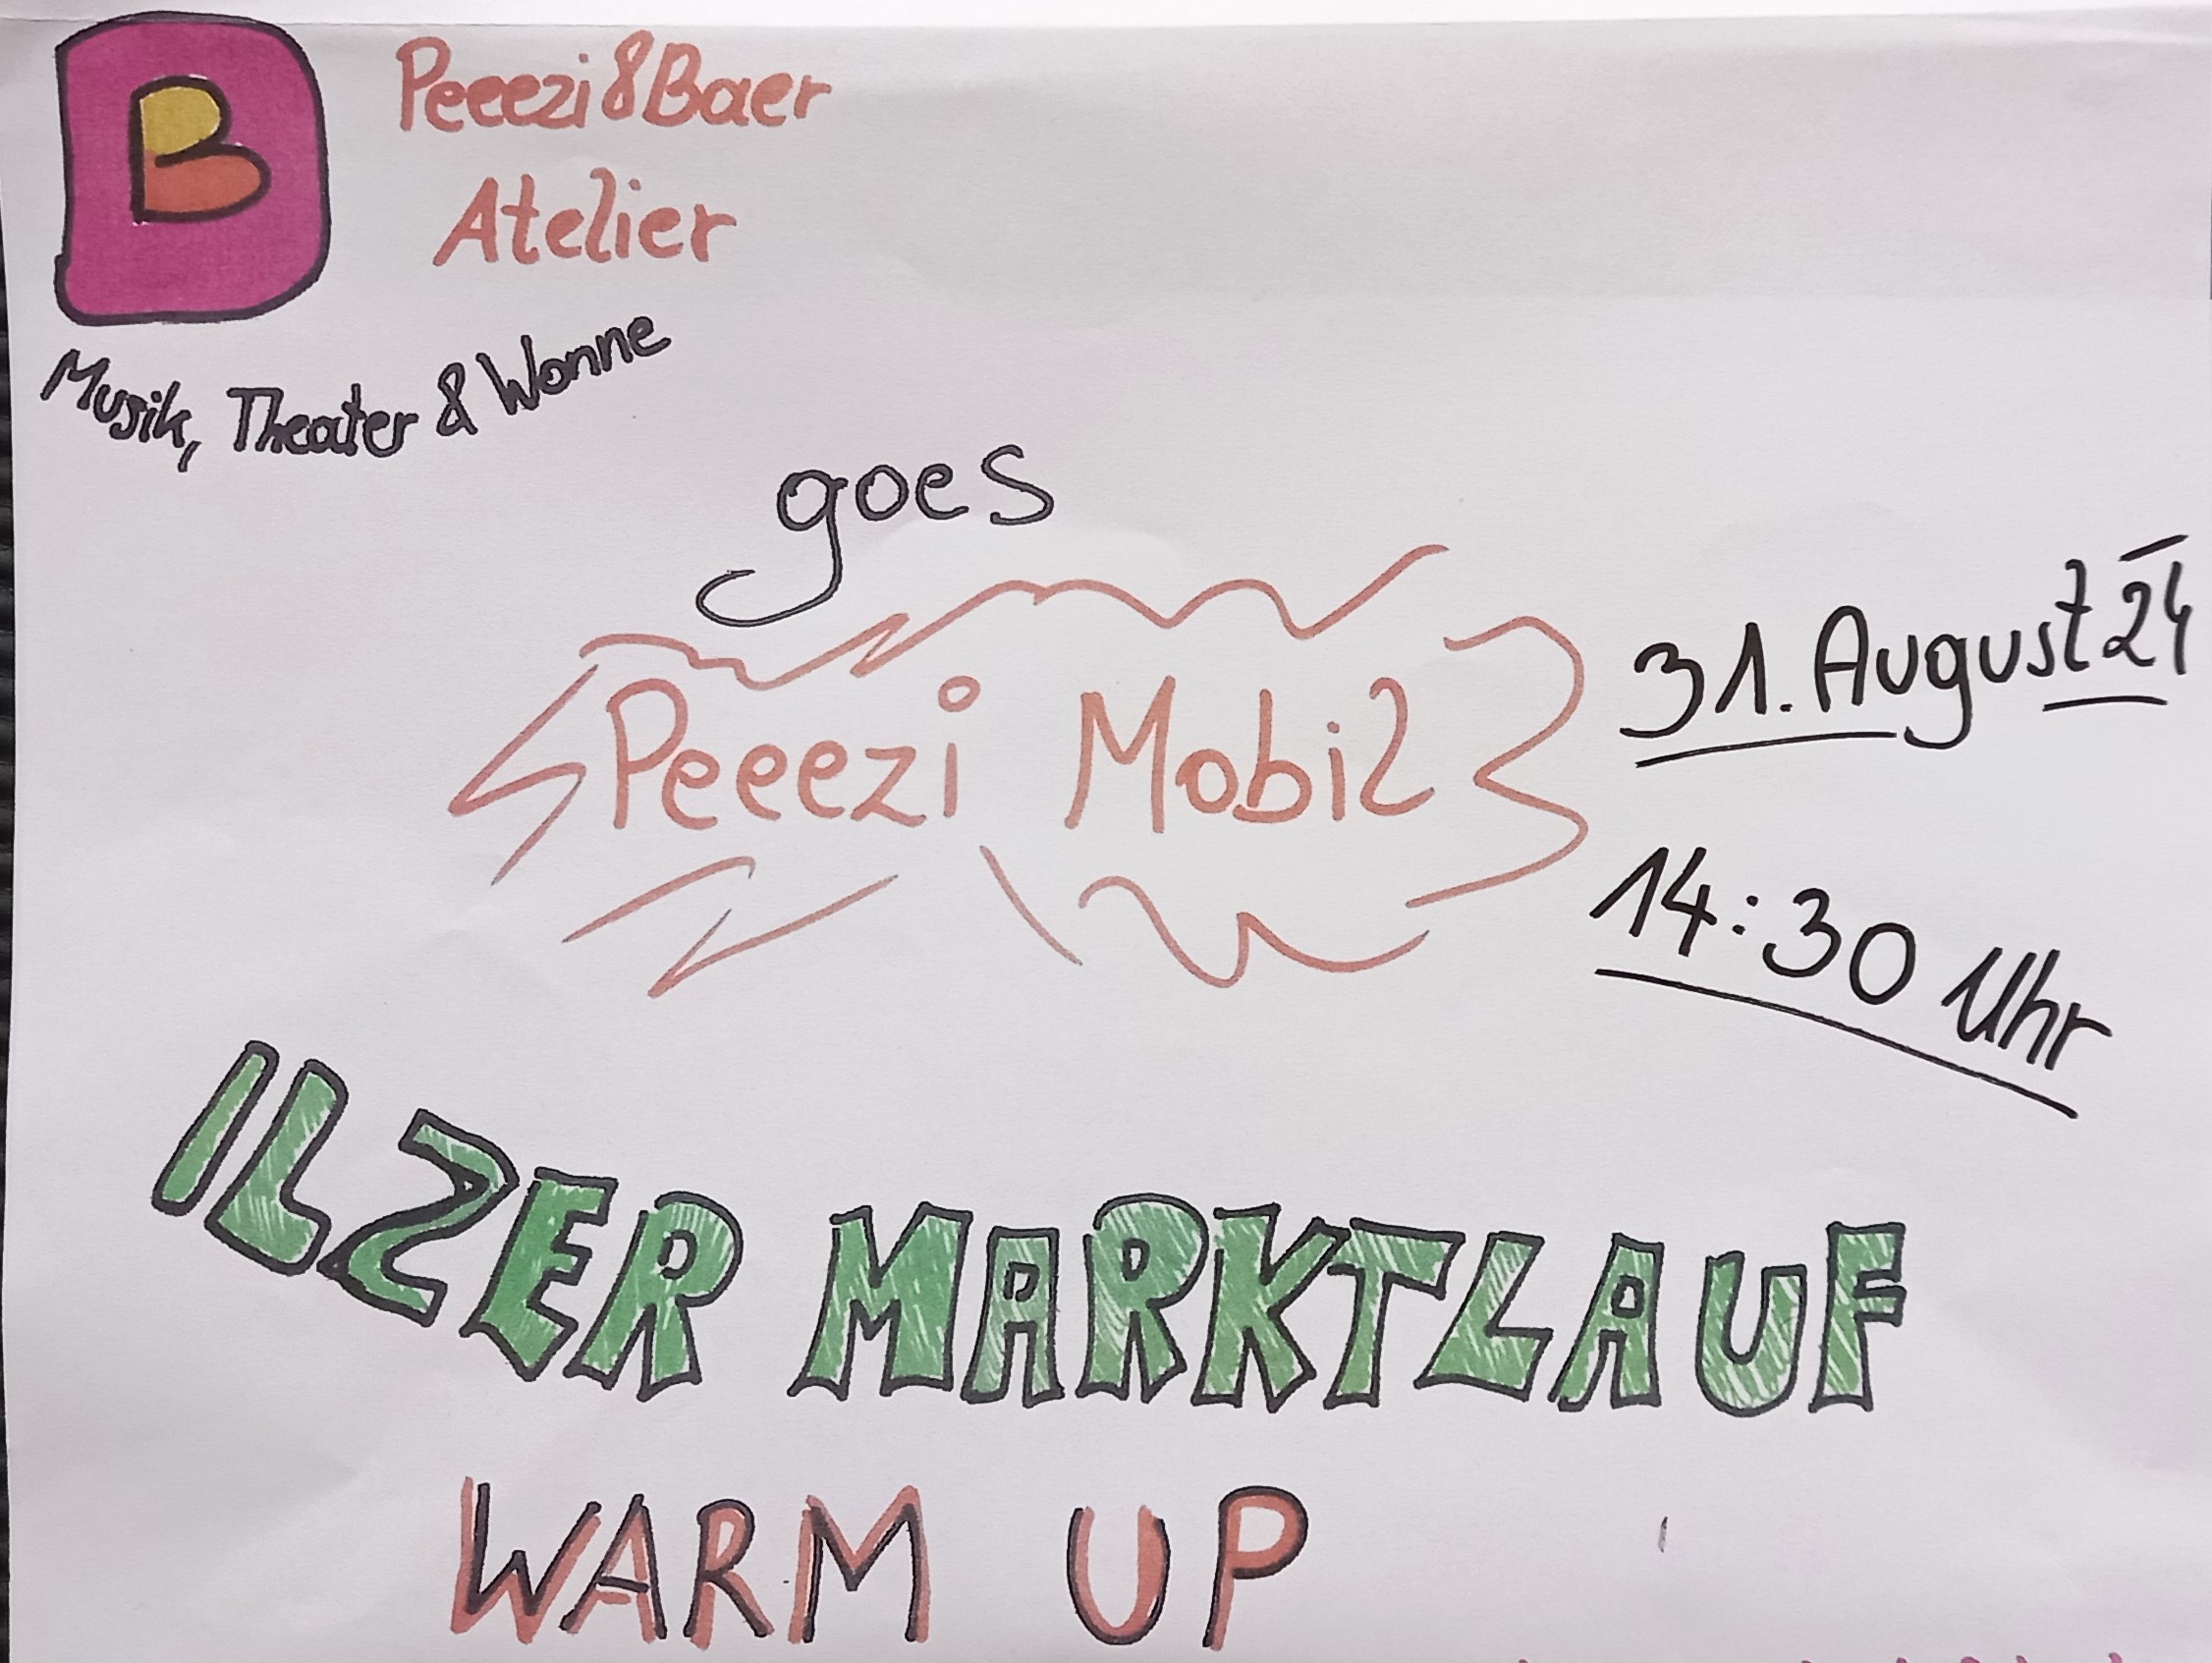 B
Peeezi & Baer
Atelier
Musik, Theater & Wonne
goes
Peeezi Mobil
31. August 24
14:30 Uhr
ILZER MARKTLAUF
WARM UP